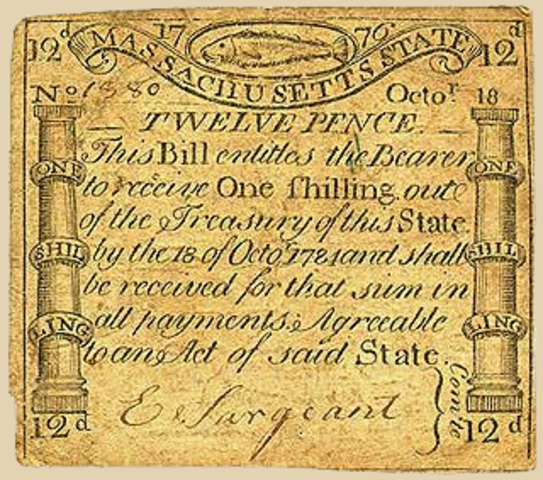 12d 17 76 12d
MASSACHUSETTS STATE
No 1380 Octor. 18
TWELVE PENCE.
This Bill entitles the Bearer
to receive One ſhilling. out
of the Treasury of this State.
by the 18 of Octor. 1784 and shall
be received for that sum in
all payments: Agreeable
to an Act of said State.
ONE SHIL LING
ONE SHIL LING
E Sargeant
Comte
12d 12d